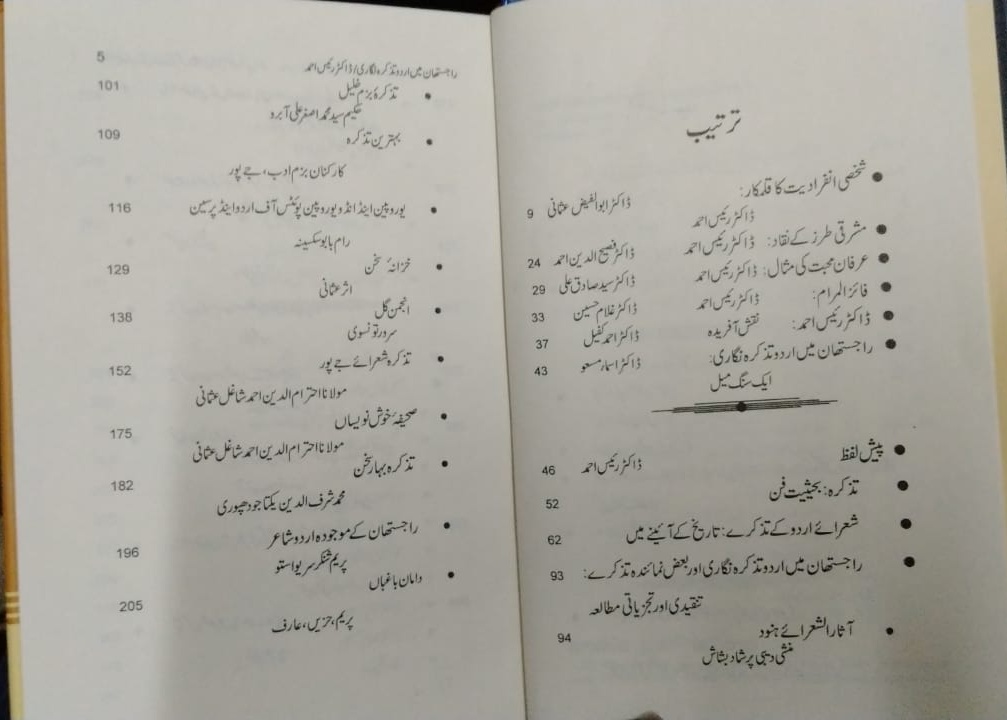 ترتیب
شخصی انفرادیت کا قلمکار:
ڈاکٹر رئیس احمد ڈاکٹر ابوالفیض عثمانی 9
مشرقی طرز کے نقاد: ڈاکٹر رئیس احمد ڈاکٹر فصیح الدین احمد 24
عرفان محبت کی مثال: ڈاکٹر رئیس احمد ڈاکٹر سید صادق علی 29
فائز المرام: ڈاکٹر رئیس احمد ڈاکٹر غلام حسین 33
ڈاکٹر رئیس احمد: نقش آفریدہ ڈاکٹر احمد کفیل 37
راجستھان میں اردو تذکرہ نگاری: ڈاکٹر اسماء مسعود 43
ایک سنگ میل
پیش لفظ ڈاکٹر رئیس احمد 46
تذکرہ: بحیثیت فن 52
شعرائے اردو کے تذکرے: تاریخ کے آئینے میں 62
راجستھان میں اردو تذکرہ نگاری اور بعض نمائندہ تذکرے: 93
تنقیدی اور تجزیاتی مطالعہ
آثار الشعرائے ہنود 94
منشی دیبی پرشاد بشاش
راجستھان میں اردو تذکرہ نگاری/ڈاکٹر رئیس احمد 5
تذکرۂ بزم خلیل 101
حکیم سید محمد اصغر علی آبرو
بہترین تذکرہ 109
کارکنان بزم ادب، جے پور
یوروپین اینڈ انڈو یوروپین پوئٹس آف اردو اینڈ پرسین 116
رام بابو سکسینہ
خزانۂ سخن 129
اثر عثمانی
انجمن گل 138
سرور تونسوی
تذکرہ شعرائے جے پور 152
مولانا احترام الدین احمد شاغل عثمانی
صحیفۂ خوش نویساں 175
مولانا احترام الدین احمد شاغل عثمانی
تذکرہ بہار سخن 182
محمد شرف الدین یکتا جودھپوری
راجستھان کے موجودہ اردو شاعر 196
پریم شنکر سریواستو
دامان باغباں 205
پریم، حزیں، عارف